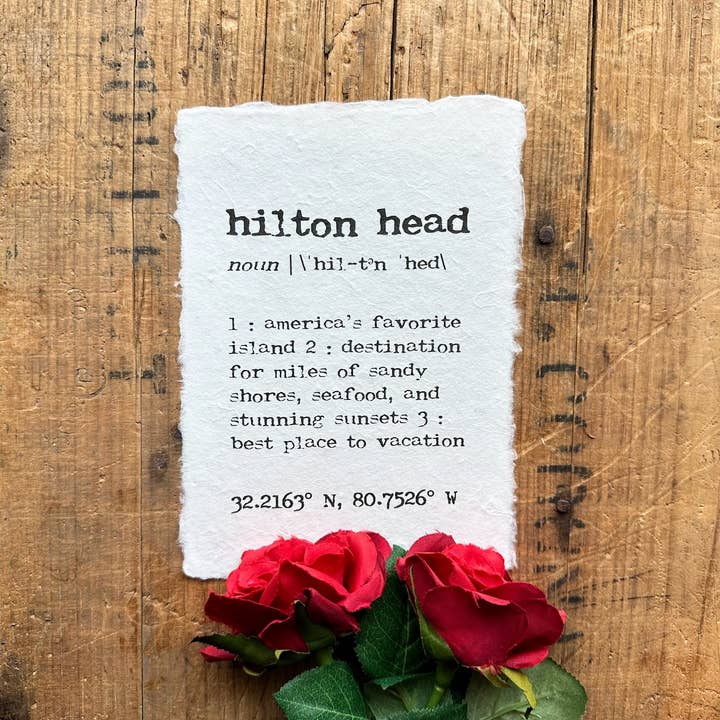 hilton head
noun | \ˈhil-tᵊn ˈhed\
1 : america's favorite
island 2 : destination
for miles of sandy
shores, seafood, and
stunning sunsets 3 :
best place to vacation
32.2163° N, 80.7526° W